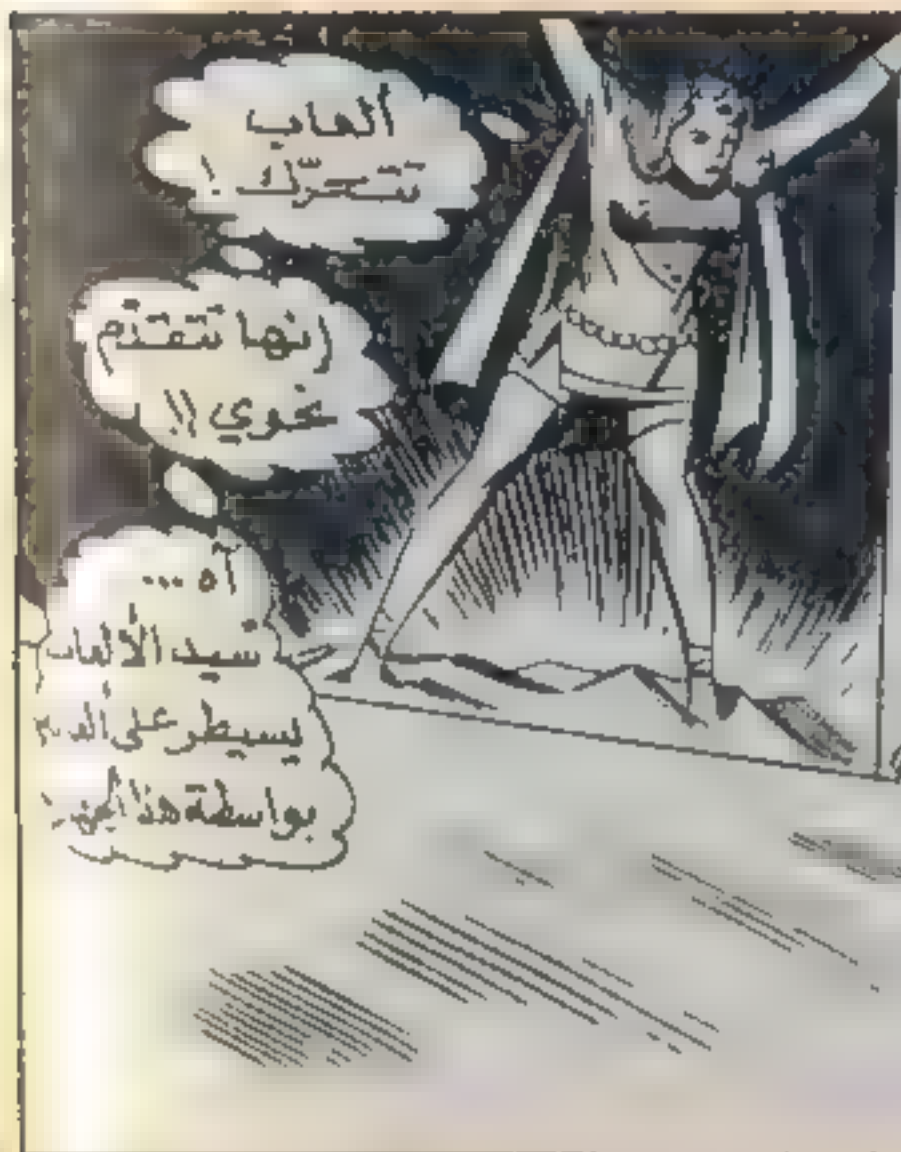 ألعاب
تتحرّك !
إنها تتقدّم
نحوي !!
آه ...
سيد الألعاب
يسيطر على
بواسطة هذا